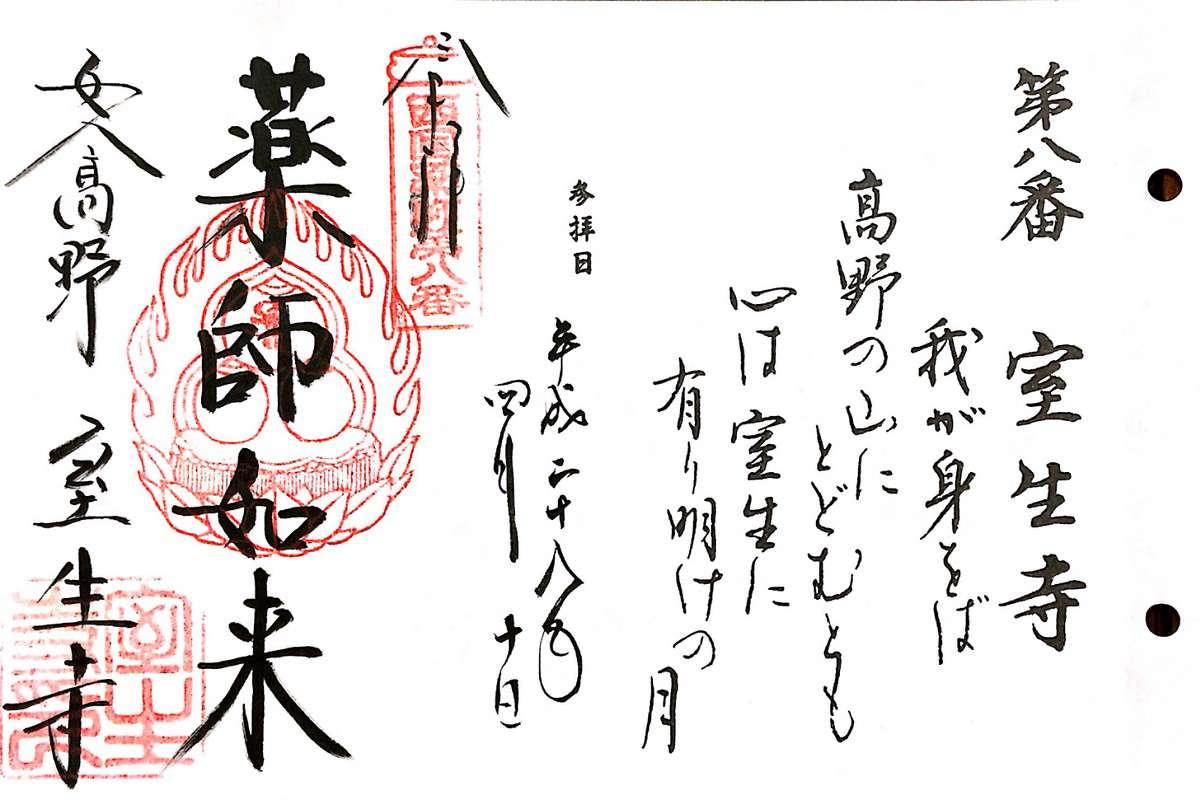 第八番 室生寺
我が身をば
高野の山に
とどむとも
心は室生に
有り明けの月
参拝日 平成二十八年
四月 十日
奉拝
西国薬師第八番
薬師如来
女人高野 室生寺